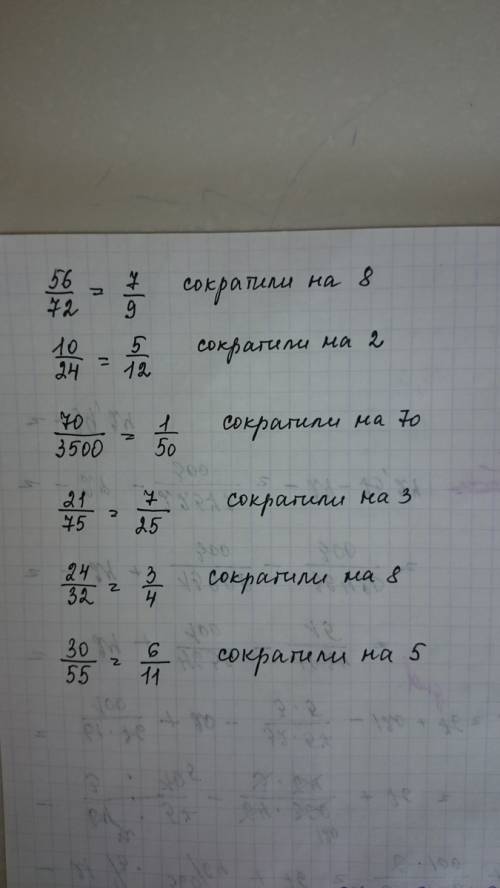 56/72 = 7/9 сократили на 8
10/24 = 5/12 сократили на 2
70/3500 = 1/50 сократили на 70
21/75 = 7/25 сократили на 3
24/32 = 3/4 сократили на 8
30/55 = 6/11 сократили на 5